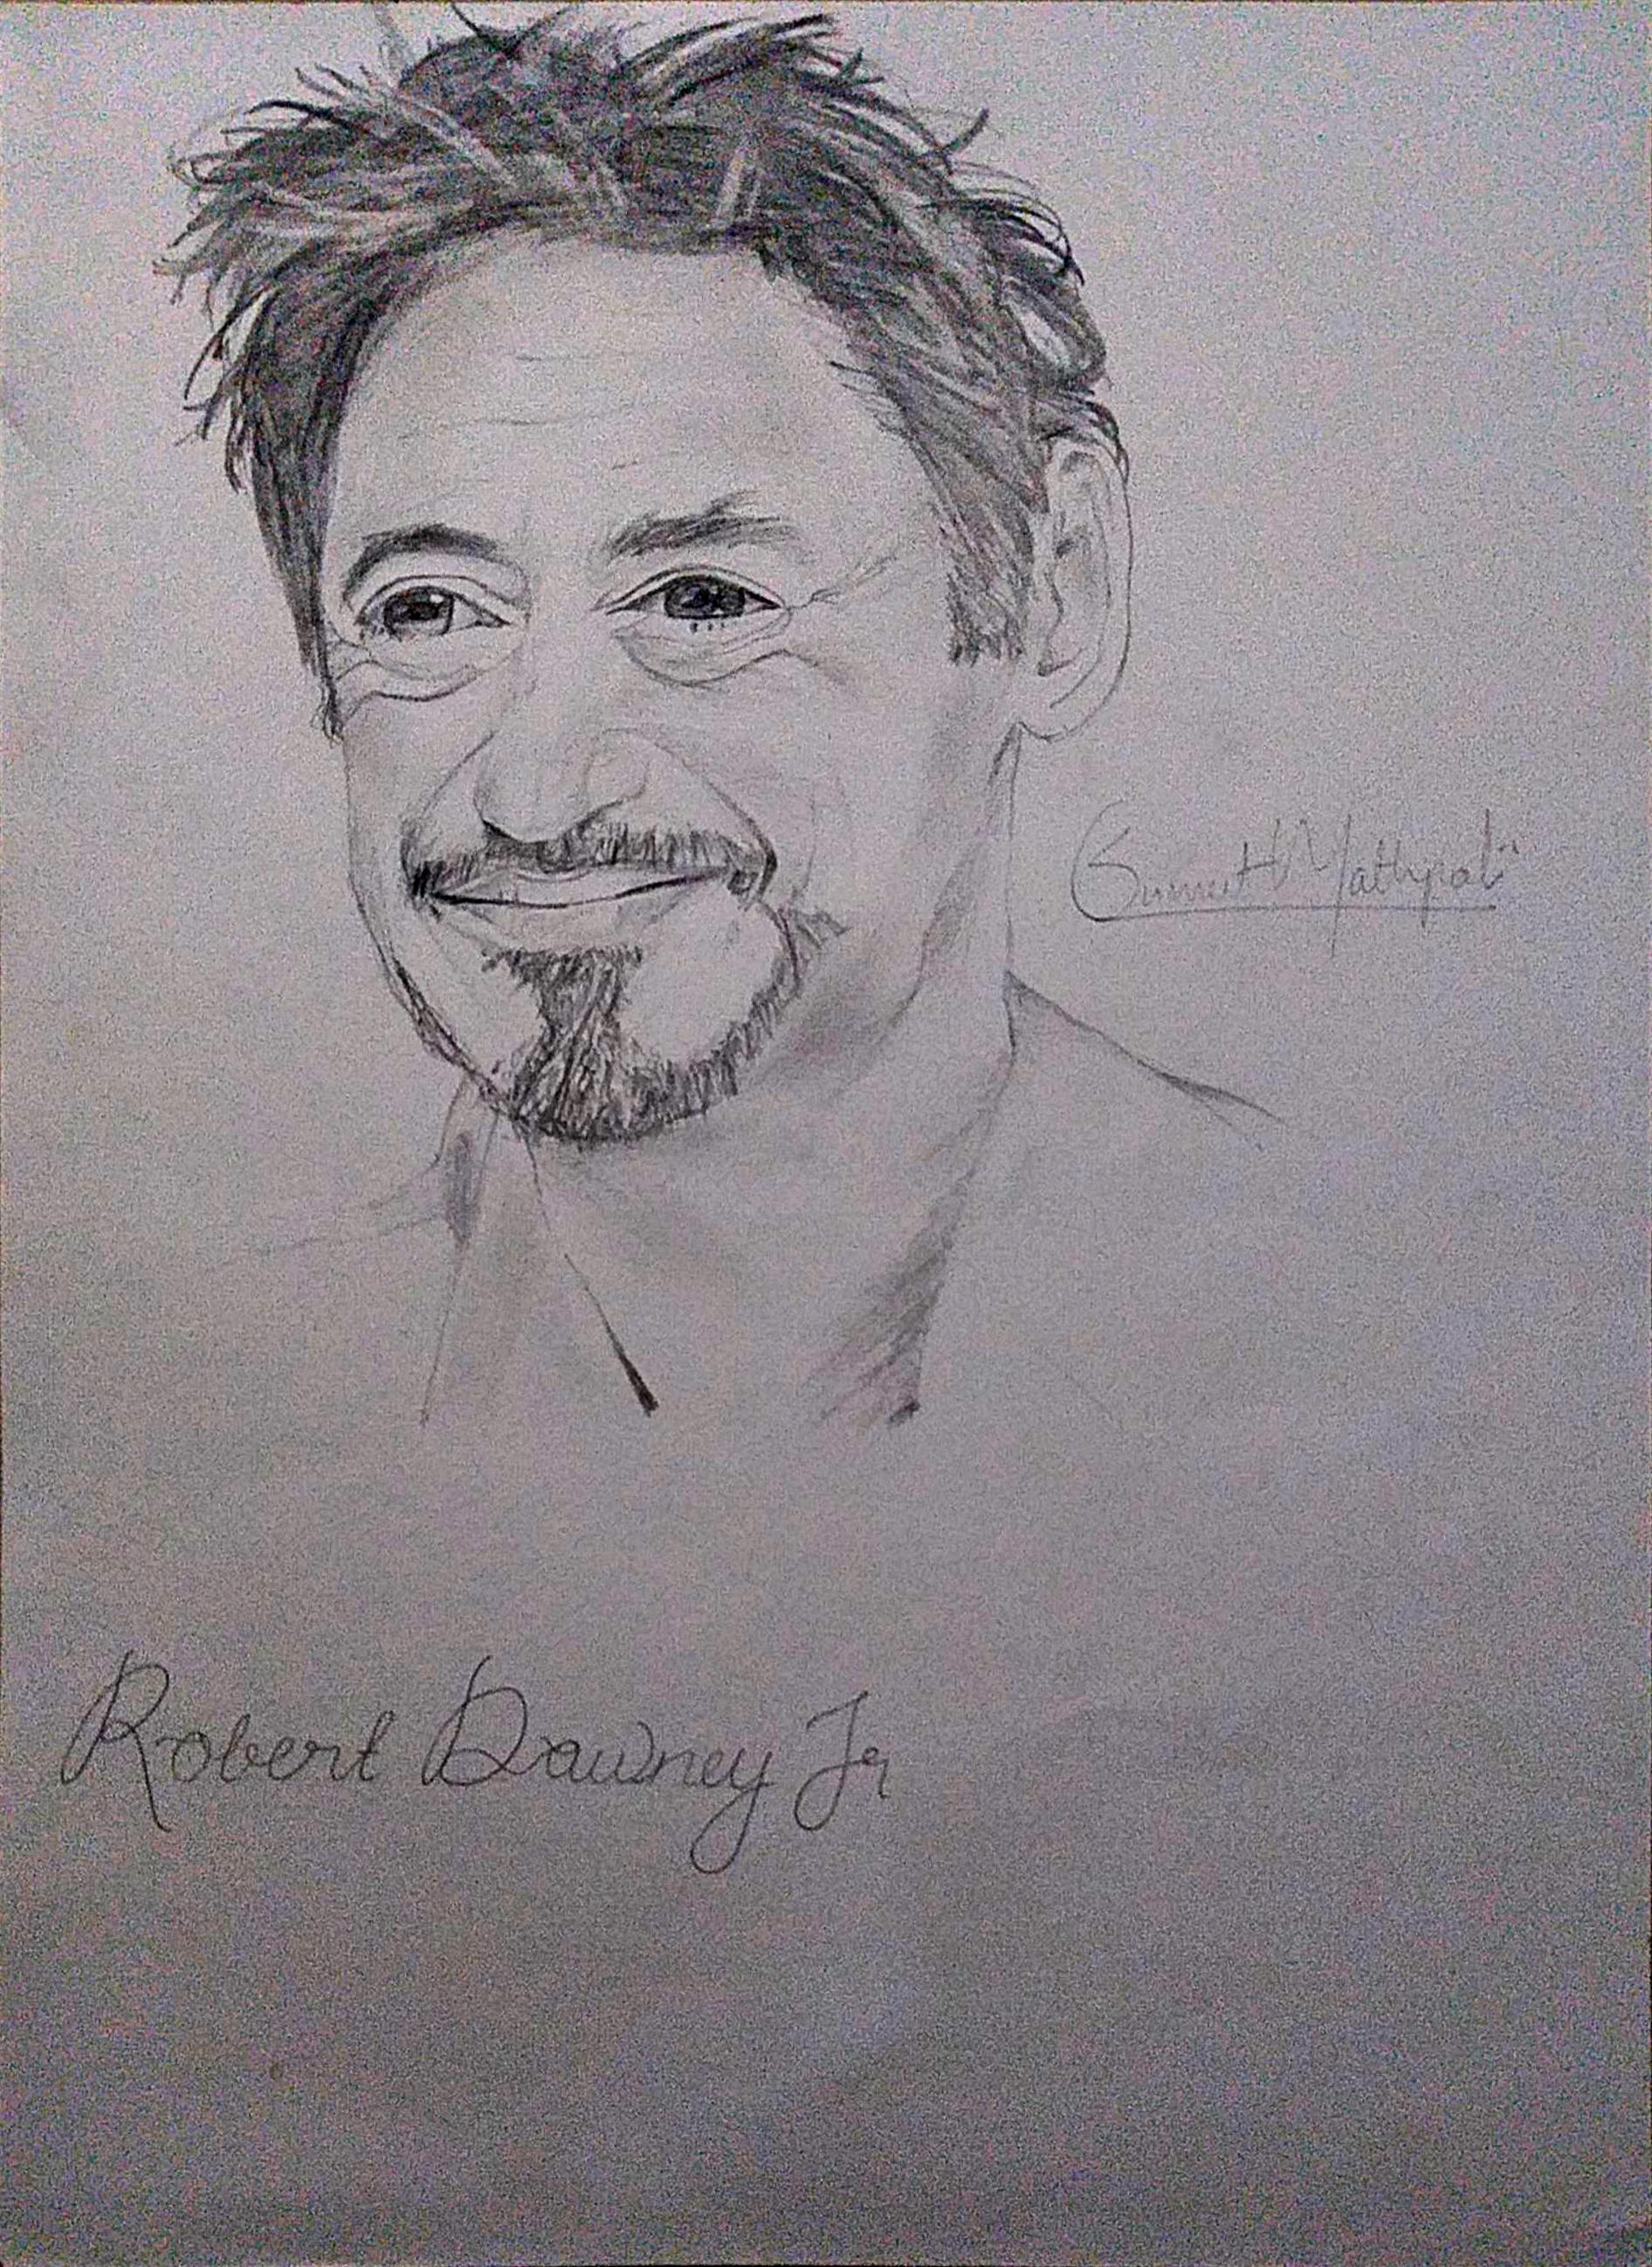 Sumit Mathpal
Robert Downey Jr